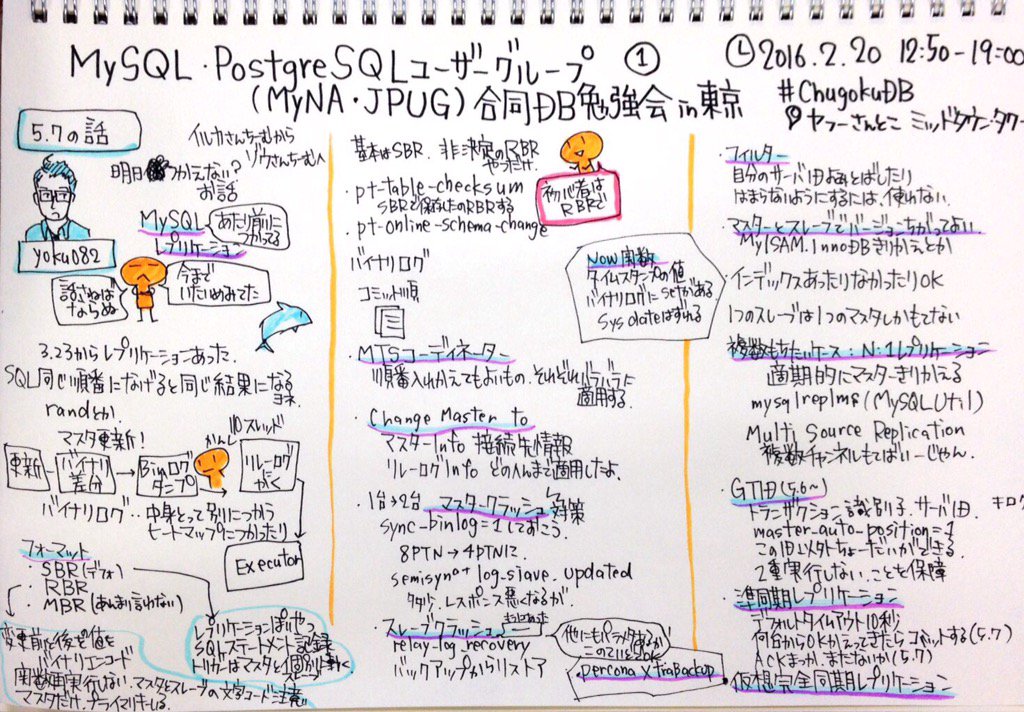 MySQL・PostgreSQLユーザーグループ ①
(MyNA・JPUG) 合同DB勉強会 in 東京
2016.2.20 12:50-19:00
#ChugokuDB
ヤフーさんとこ ミッドタウン・タワー
5.7の話
イルカさんちーむから
ゾウさんちーむへ
明日つかえない?
お話
yoku0825
MySQL
レプリケーション
あたり前に
つかってる
話さねば
ならぬ
今まで
いたいめみてた
3.23からレプリケーションあった.
SQL同じ順番になげると同じ結果になる
ヨネ.
randとか.
マスタ更新!
IOスレッド
かんし
更新
バイナリ
差分
Binログ
ダンプ
リレーログ
にかく
バイナリログ‥中身とって
ヒートマップにつかったり
Executor
フォーマット
・SBR(デフォ)
・RBR
・MBR(あんまり言わない)
変更前と後を値を
バイナリエンコード
関数再実行しない.マスタとスレーブの文字コードに注意
マスタだけ.プライマリキーいる.
レプリケーションぽいやつ
SQLステートメント記録
トリガーはマスタと
スレーブ
基本はSBR. 非決定のRBR
やっつけ.
初心者は
RBRで
・pt-table-checksum
SBRで保存したのRBRする
・pt-online-schema-change
バイナリログ
コミット順
Now関数
タイムスタンプの値
バイナリログにsetがある
Sysdateはずれる
・MTSコーディネーター
順番入れかえてもよいもの.それぞれバラバラに
適用する.
・Change Master to
マスターInfo 接続先情報
リレーログInfo どのへんまで適用したよ.
・1台→2台 マスタークラッシュ対策
sync-binlog=1しておこう.
8PTN→4PTNに.
semisyn log_slave_updated
タダシ.レスポンス悪くなるが.
スレーブクラッシュ
relay-log_recovery
バックアップからリストア
他にもパラメタあるが
percona XtraBackup
・フィルター
自分のサーバIDよみとばしたり
はまらないようにするには、使わない.
・マスターとスレーブでバージョンちがってよい
MyISAM.InnoDBきりかえとか
・インデックスあったりなかったりOK
・1つのスレーブは1つのマスタしかもてない
複数もちたいケース:N:1レプリケーション
適期的にマスターきりかえる
mysqlrplms(MySQL Util)
Multi Source Replication
複数チャンネルもてばいーじゃん.
・GTID(5.6~)
トランザクション識別子.サーバID
master_auto_position=1
このID以外ちょーだいができる.
2重実行しない.ことを保障
・準同期レプリケーション
デフォルトタイムアウト10秒
何台からOKかえってきたらコミットする(5.7)
ACKまつか、またないか(5.7)
・仮想完全同期レプリケーション